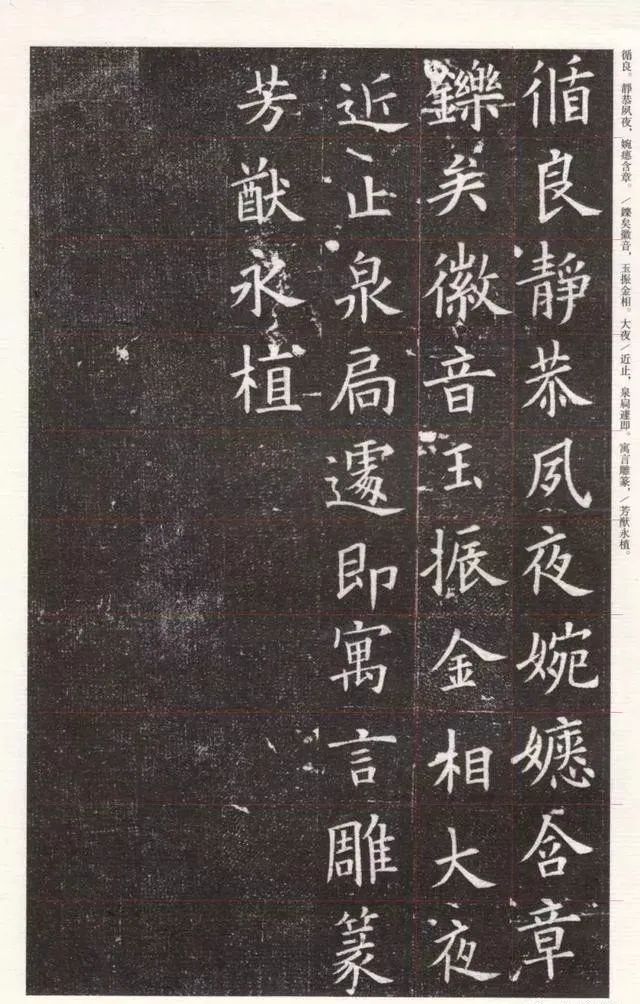 循良。靜恭夙夜，婉嫕含章。／鑠矣徽音，玉振金相。大夜／近止，泉扃遽即。寓言雕篆，／芳猷永植。
循良靜恭夙夜婉嫕含章
鑠矣徽音玉振金相大夜
近止泉扃遽即寓言雕篆
芳猷永植